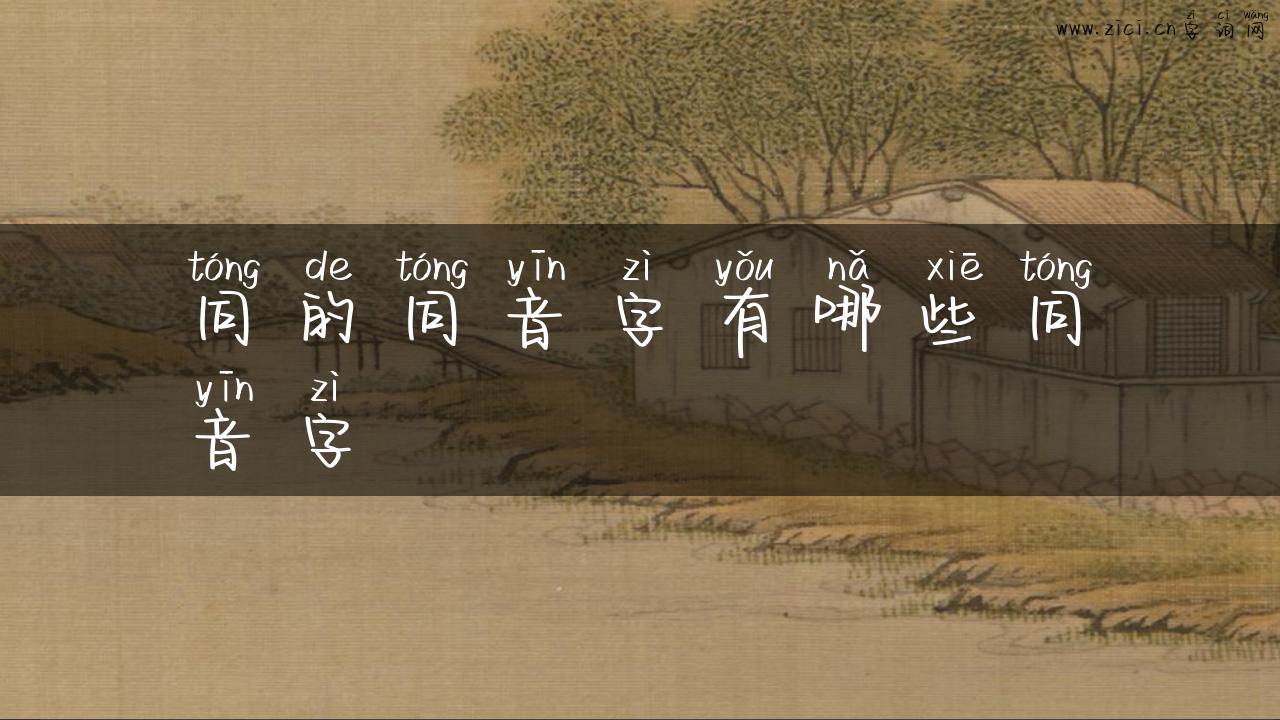 zì cí wǎng
www.zici.cn字词网
tóng de tóng yīn zì yǒu nǎ xiē tóng
同的同音字有哪些同
yīn zì
音字